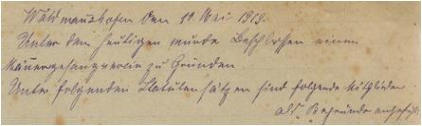 Waldmannshofen den 19. Mai 1919.
Unter dem heutigen wurde Beschlossen einen
Männergesangverein zu Gründen.
Unter folgenden Statutensätzen sind folgende Mitglieder
als Begründer